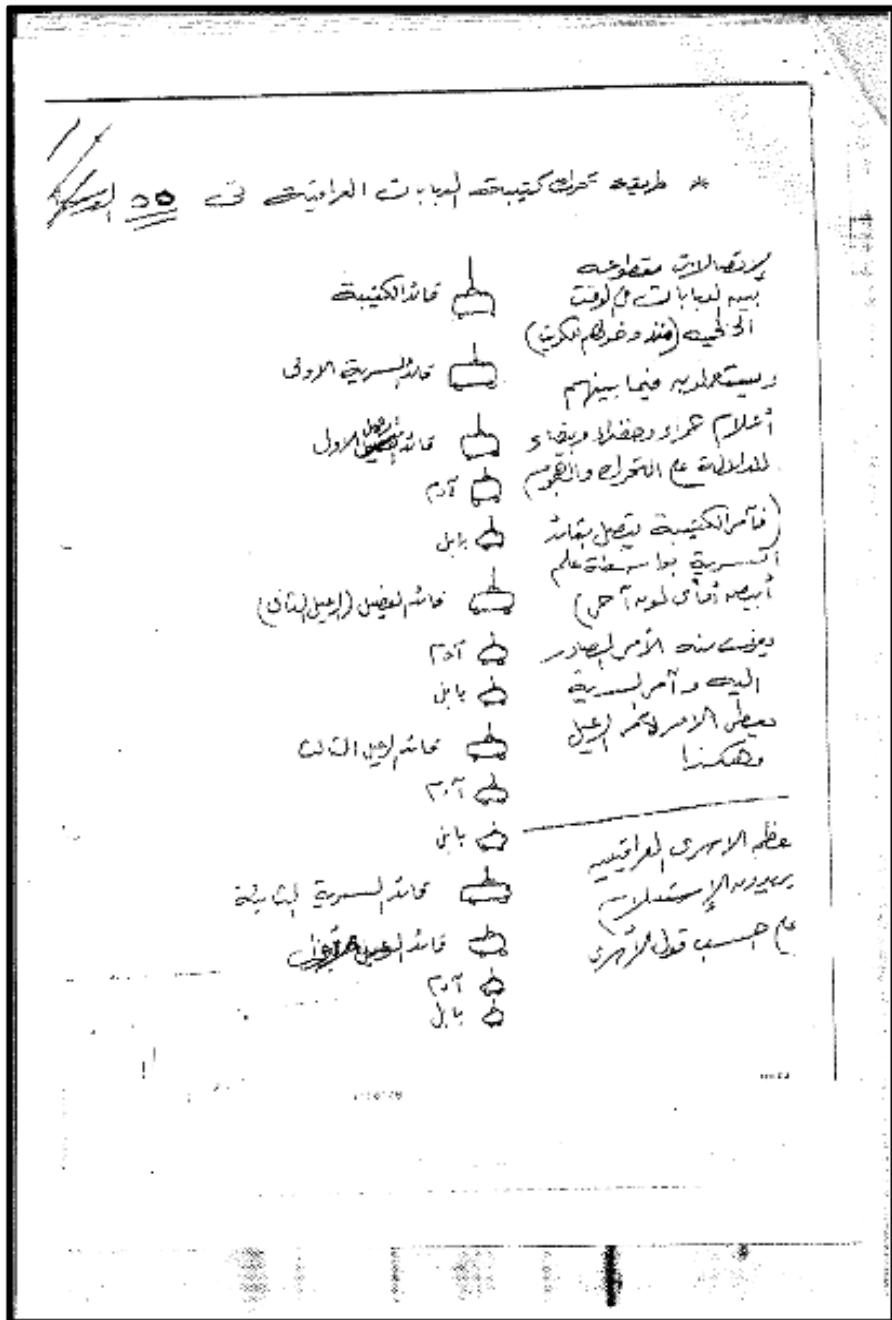 * طريقة تحرك كتيبة الدبابات العراقية فى
الاتصالات مقطوعه
بين الدبابات فى الوقت
الحالى (منذ دخولهم الكويت)
ويستعملون فيما بينهم
أعلام حمراء وخضراء وبيضاء
للدلالة على التحرك والهجوم
(فآمر الكتيبة يتصل بقائد
السرية بواسطة علم
أبيض أو أى لون آخر)
ويعرف منه الأمر الصادر
اليه وآمر السرية
يعطى الامر لآمر الرعيل
وهكذا
معظم الاسرى العراقيين
يريدون الإستسلام
على حسب قول الأسرى
قائد الكتيبة
قائد السرية الاولى
قائد الرعيل الاول
آدم
بابل
قائد الفصيل (الرعيل الثانى)
آدم
بابل
قائد الرعيل الثالث
آدم
بابل
قائد السرية الثانية
قائد
آدم
بابل